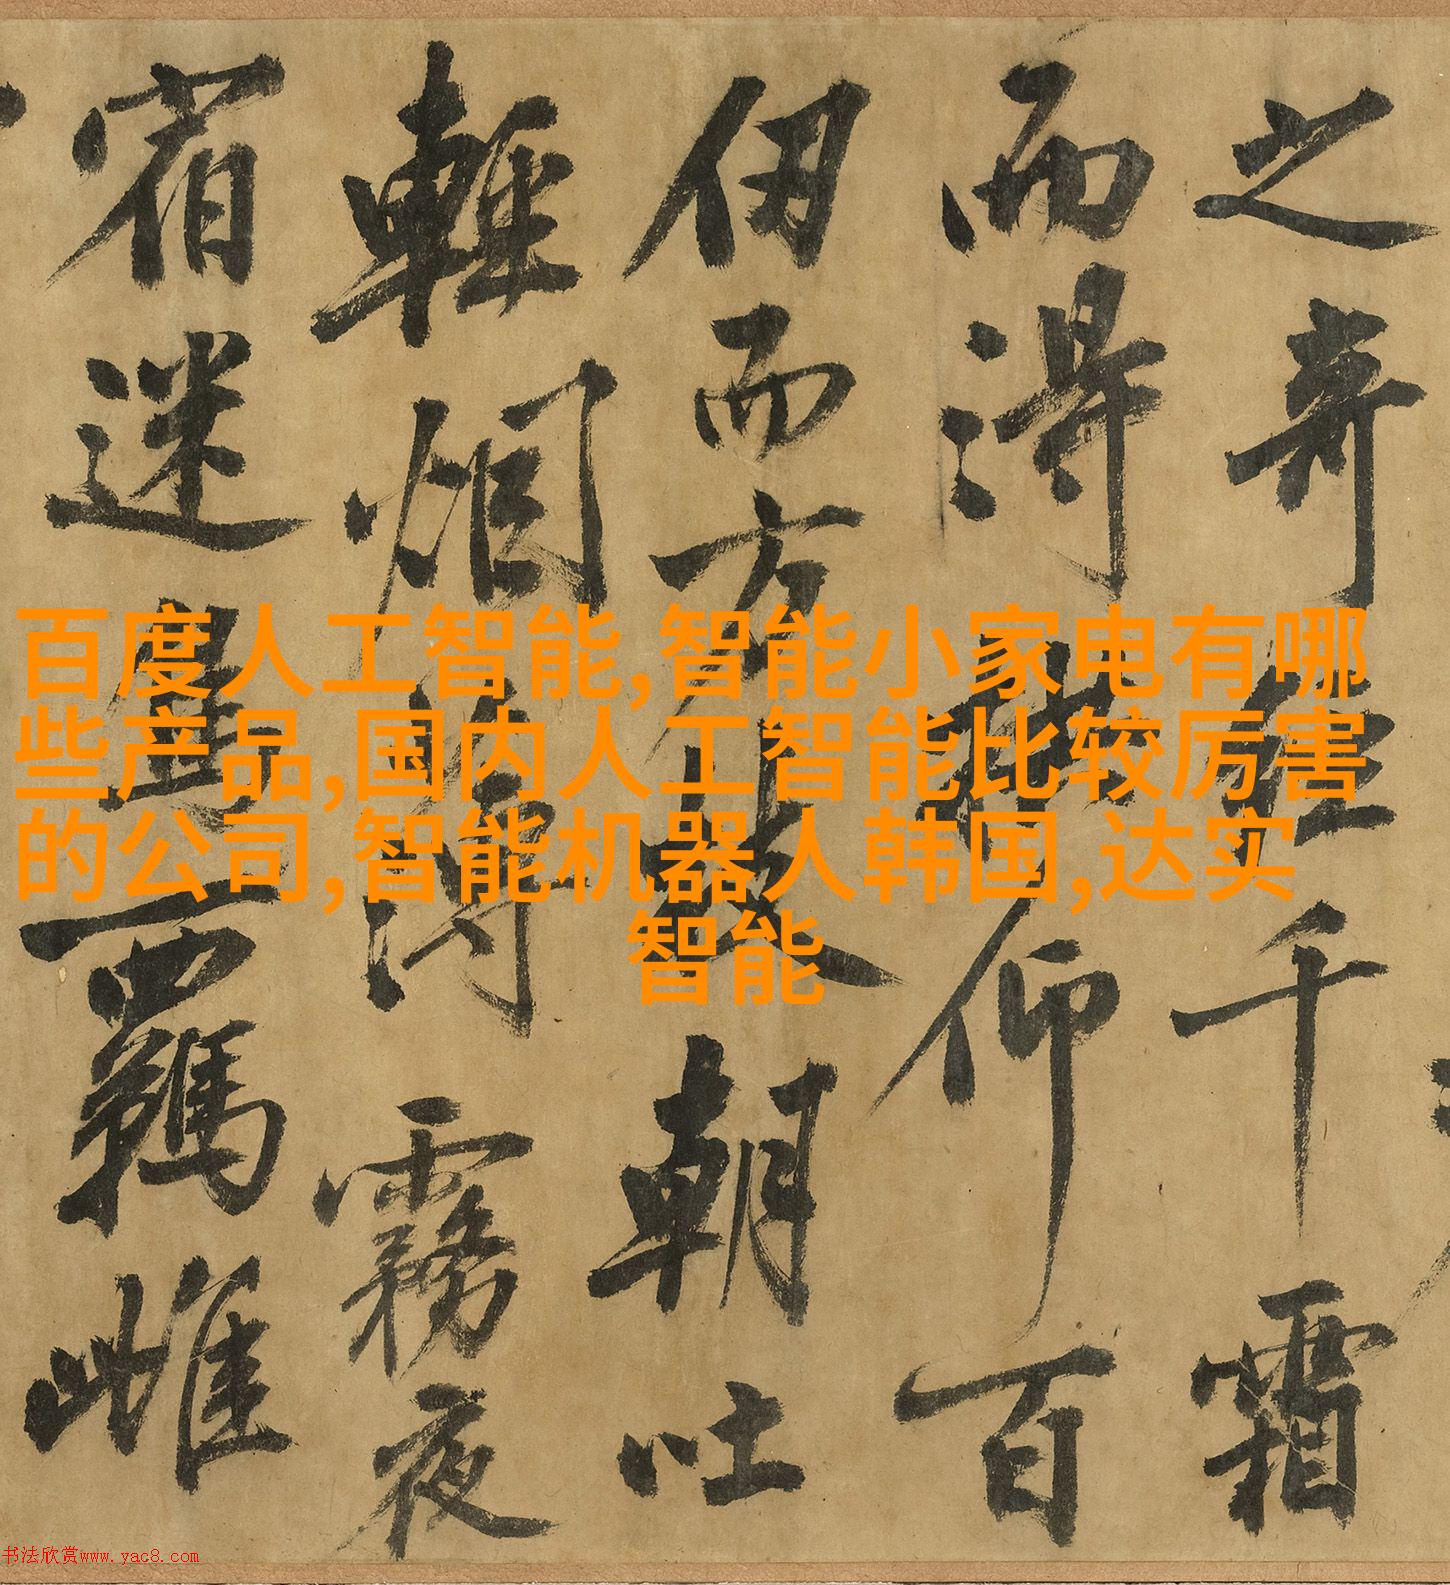 之奇千霜
而得仰百
仞而方朝吐
輕烟霧夜
宿迷羈雌
百度人工智能,智能小家电有哪
些产品,国内人工智能比较厉害
的公司,智能机器人韩国,达实
智能
书法欣赏www.yac8.com